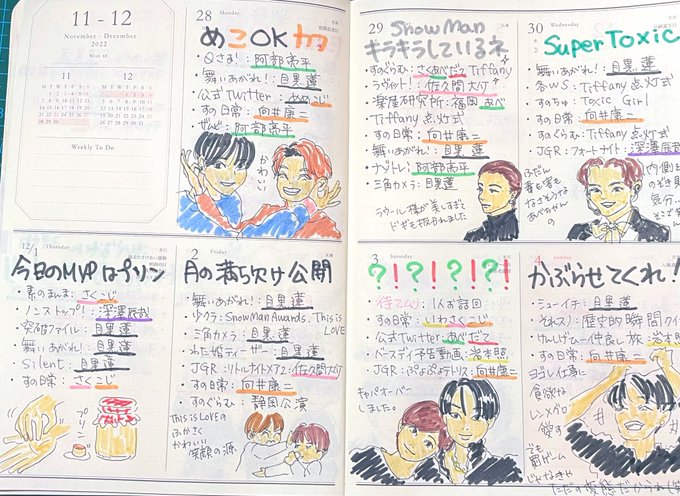 11 - 12
November - December
2022
Week 48
11
12
M T W T F S S
M T W T F S S
Weekly To Do
28 Monday
めこOKカフ
・Qさま!：阿部亮平
・舞いあがれ!：目黒蓮
・公式Twitter：めめこじ
・すの日常：向井康二
：阿部亮平
かわいい
29 Tuesday
SnowMan
キラキラしているネ
・すのぐらむ：さくあべだてTiffany
・ラヴィット!：佐久間大介
・楽屋研究所：福岡 あべ
・Tiffany 点灯式
・すの日常：向井康二
・舞いあがれ!：目黒蓮
・ナゾトレ：阿部亮平
・三角カメラ：目黒蓮
ラウール様が美しすぎて
ドギモ抜かれました
30 Wednesday
Super Toxic
・舞いあがれ!：目黒蓮
・各WS：Tiffany 点灯式
・すのちゅ：Toxic Girl
・すの日常：向井康二
・すのぐらむ：Tiffany 点灯式
・JGR：フォートナイト：深澤辰哉
12/1 Thursday
今日のMVPはプリン
・素のまんま：さくこじ
・ノンストップ!：深澤辰哉
・突破ファイル：目黒蓮
・舞いあがれ!：目黒蓮
・Silent：目黒蓮
・すの日常：さくこじ
プリン
2 Friday
月の満ち欠け公開
・舞いあがれ!：目黒蓮
SnowMan Awards. This is
LOVE
・三角カメラ：目黒蓮
・わた婚ティーザー：目黒蓮
・JGR：リトルナイトメア2：佐久間大介
・すの日常：向井康二
・すのぐらむ：静岡公演
This is LOVEの
ふかさく
かわいい
笑顔の源
3 Saturday
?!?!?!?!
・すの日常：いわさくこじ
・公式Twitter あべだて
・バースデイ予告動画：岩本照
・JGR：ぷよぷよテトリス：向井康二
キャパオーバー
しました。
4 Sunday
かぶらせてくれ!
・シューイチ：目黒蓮
・それスノ：歴史的瞬間クイ
・すの日常：向井康二
ヨゴレ仕事に
貪欲な
レンメグロ
愛す
でも
罰ゲーム
じゃなきゃ
ただの変態だからね(笑